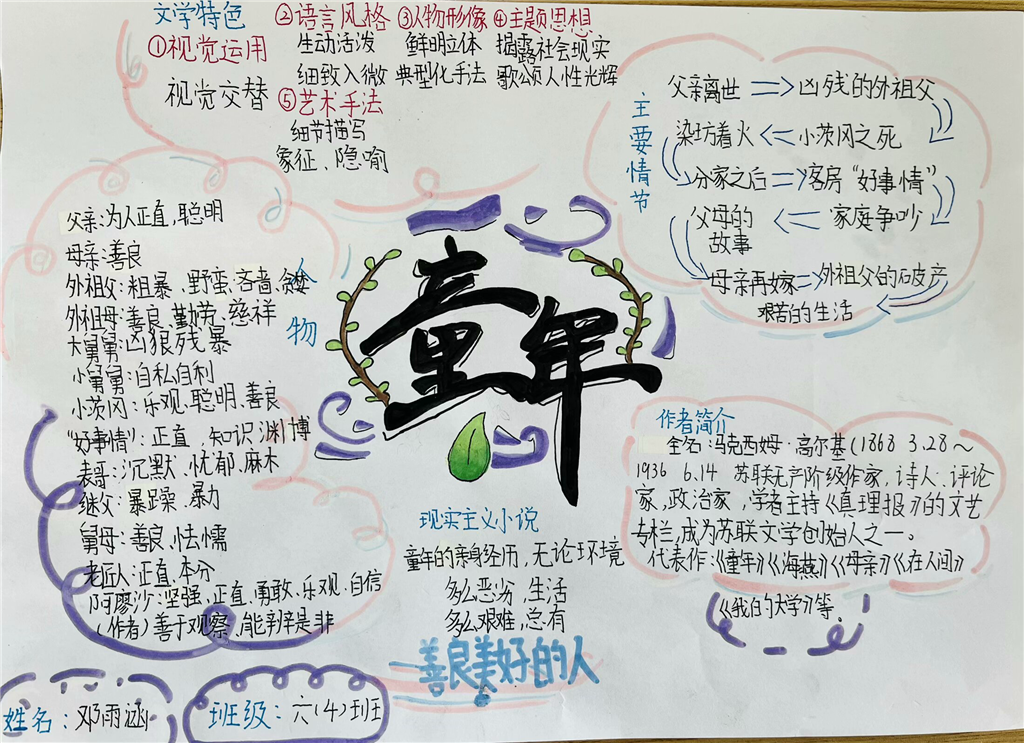 文学特色
①视觉运用
视觉交替
②语言风格
生动活泼
细致入微
③人物形像
鲜明立体
典型化手法
④主题思想
揭露社会现实
歌颂人性光辉
⑤艺术手法
细节描写
象征、隐喻
主要情节
父亲离世 => 凶残的外祖父
染坊着火 <= 小茨冈之死
分家之后 => 客房“好事情”
父母的故事 <= 家庭争吵
母亲再嫁 => 外祖父的破产
艰苦的生活
人物
父亲:为人正直,聪明
母亲:善良
外祖父:粗暴、野蛮、吝啬、贪婪
外祖母:善良、勤劳、慈祥
大舅舅:凶狠残暴
小舅舅:自私自利
小茨冈:乐观、聪明、善良
“好事情”:正直,知识渊博
表哥:沉默、忧郁、麻木
继父:暴躁、暴力
舅母:善良、怯懦
老匠人:正直、本分
阿廖沙:坚强、正直、勇敢、乐观、自信
(作者)善于观察、能辨是非
童年
现实主义小说
童年的亲身经历,无论环境
多么恶劣,生活
多么艰难,总有
善良美好的人
作者简介
全名:马克西姆·高尔基(1868 3.28~
1936 6.14 苏联无产阶级作家,诗人,评论
家,政治家,学者主持《真理报》的文艺
专栏,成为苏联文学创始人之一。
代表作:《童年》《海燕》《母亲》《在人间》
《我的大学》等.
姓名:邓雨涵
班级:六(4)班